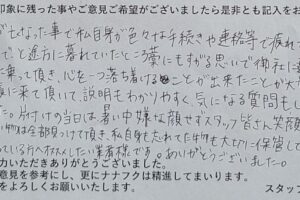 印象に残った事やご意見ご希望がございましたら是非とも記入をお
亡くなった事で私自身が色々な手続きや連絡等で疲れ
で途方に暮れていたところ藁にもすがる思いで御社に
乗って頂き、心を一つ落ち着けることが出来たことが大
に来て頂いて、説明もわかりやすく、気になる質問もし
た。片付けの当日は暑い中嫌な顔せずスタッフ皆さん笑顔
物は全部見つけて頂き、私自身も忘れてた物も大切に保管して
っている方へオススメしたい業者様です。ありがとうございました。
力いただきありがとうございました。
意見を参考にし、更にナナフクは精進してまいります。
をよろしくお願いいたします。
スタッフ